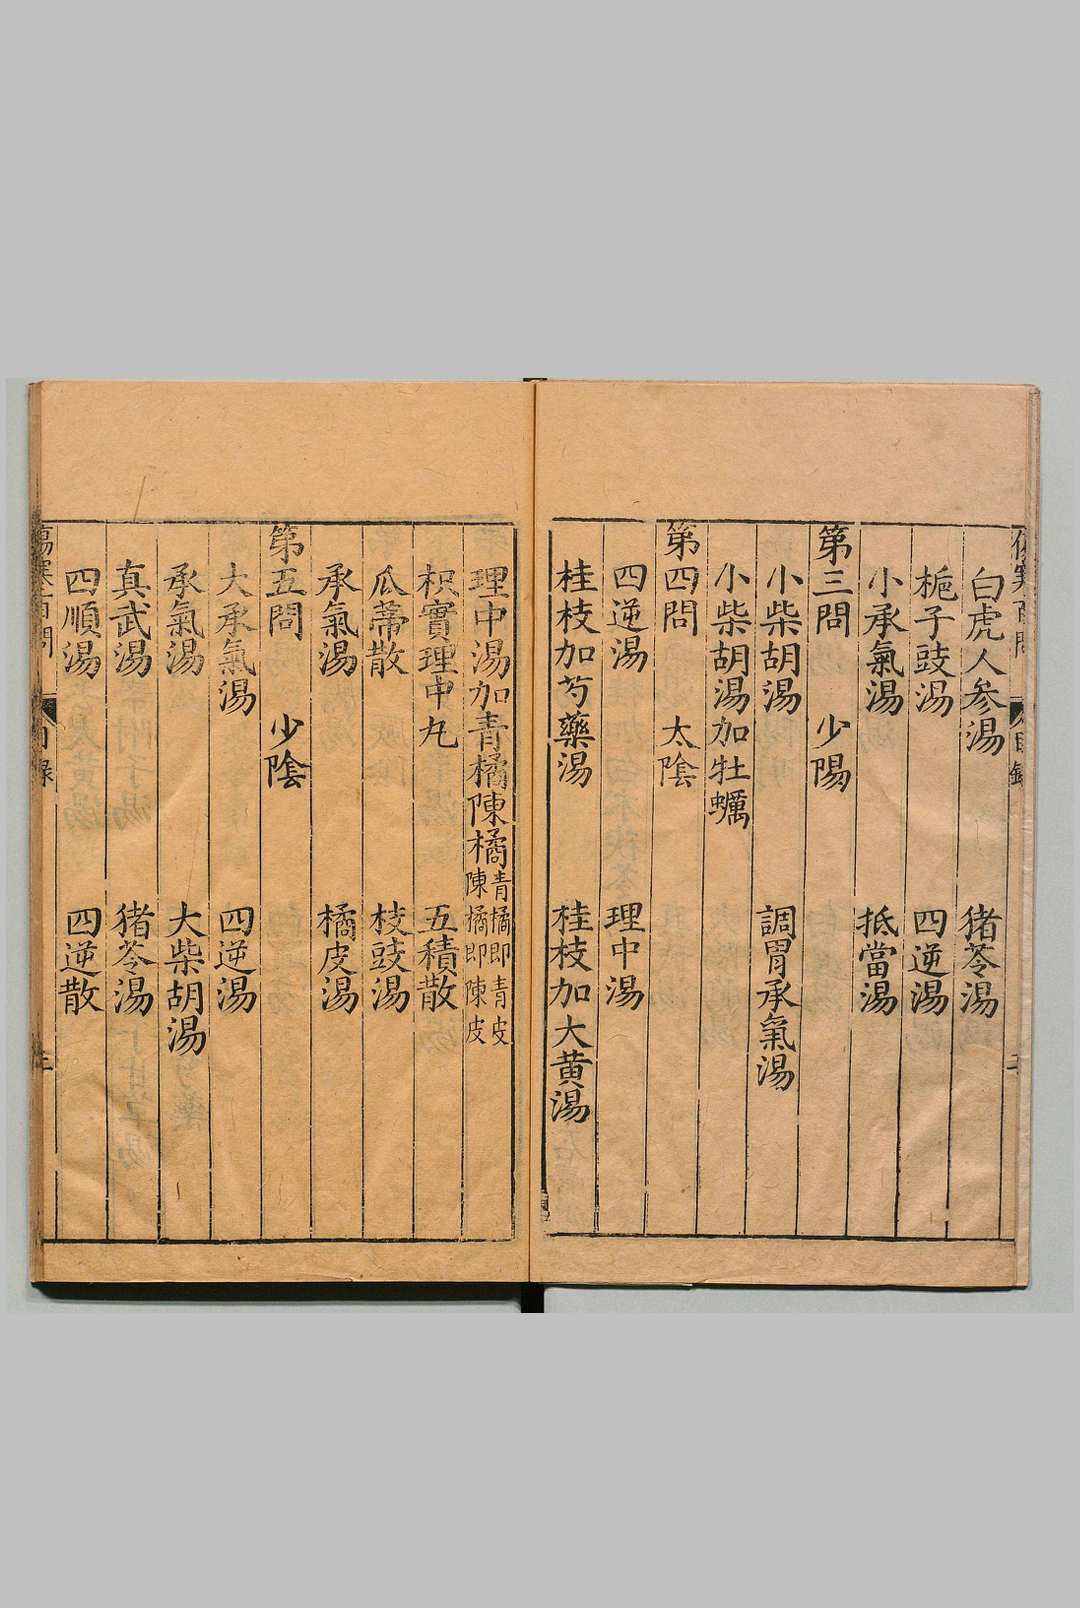 白虎人參湯 猪苓湯
梔子豉湯 四逆湯
小承氣湯 抵當湯
第三問 少陽
小柴胡湯 調胃承氣湯
小柴胡湯加牡蠣
第四問 太陰
四逆湯 理中湯
桂枝加芍藥湯 桂枝加大黄湯
理中湯加青橘陳橘 青橘即青皮 陳橘即陳皮
枳實理中丸 五積散
瓜蔕散 枝豉湯
承氣湯 橘皮湯
第五問 少陰
大承氣湯 四逆湯
承氣湯 大柴胡湯
真武湯 猪苓湯
四順湯 四逆散
傷寒百問 目録 三